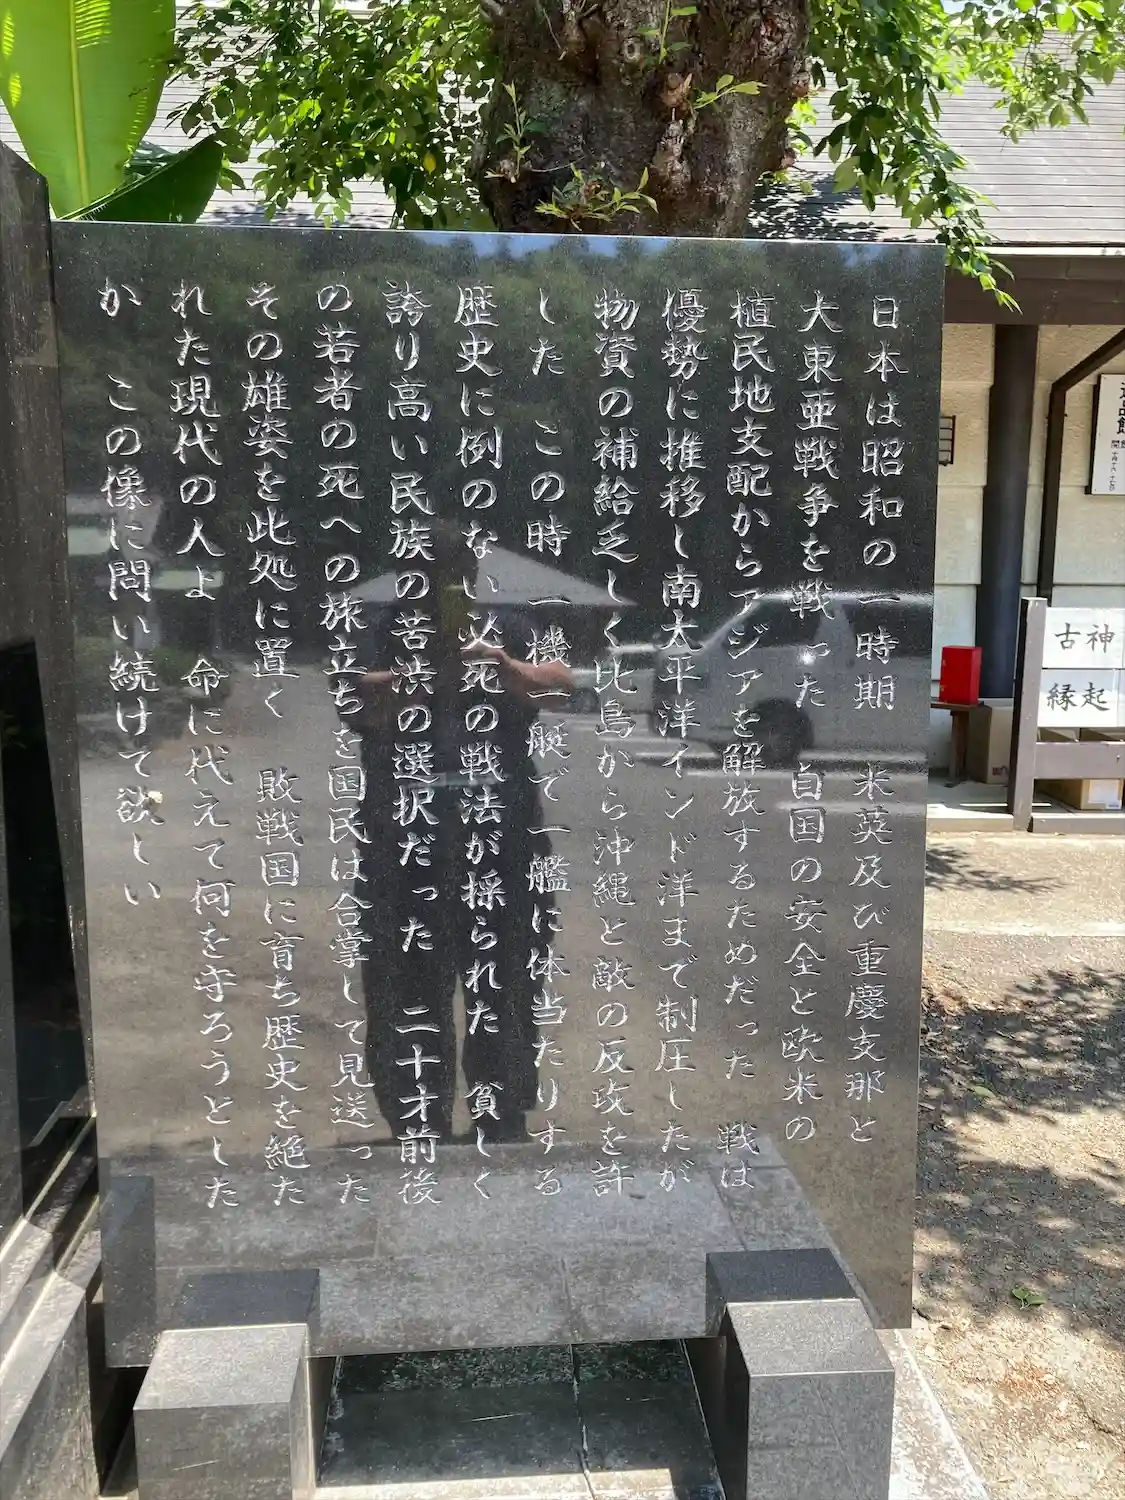 日本は昭和の一時期　米英及び重慶支那と
大東亜戦争を戦った　自国の安全と欧米の
植民地支配からアジアを解放するためだった　戦は
優勢に推移し南太平洋インド洋まで制圧したが
物資の補給乏しく比島から沖縄と敵の反攻を許
した　この時　一機一艇で一艦に体当たりする
歴史に例のない必死の戦法が採られた　貧しく
誇り高い民族の苦渋の選択だった　二十才前後
の若者の死への旅立ちを国民は合掌して見送った
その雄姿を此処に置く　敗戦国に育ち歴史を絶た
れた現代の人よ　命に代えて何を守ろうとした
か　この像に問い続けて欲しい
古神
縁起